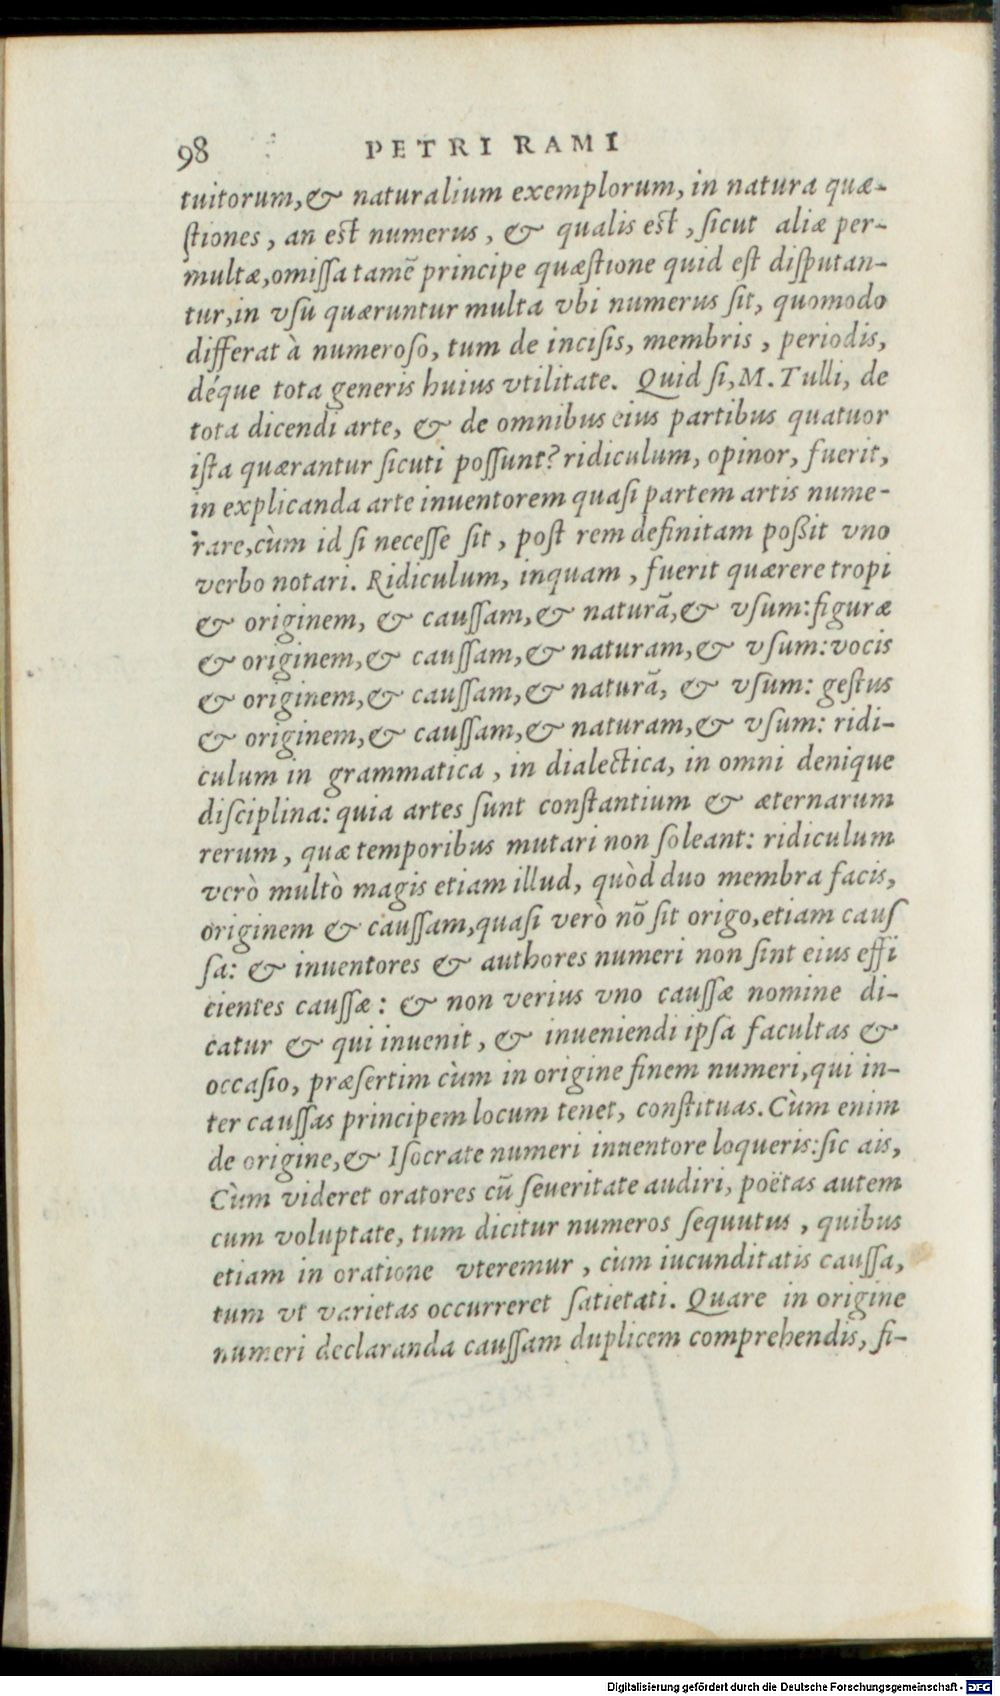 98 PETRI RAMI
tuitorum,& naturalium exemplorum, in natura quæ-
ſtiones, an eſt numerus, & qualis eſt, ſicut aliæ per-
multæ,omiſſa tamẽ principe quæſtione quid eſt diſputan-
tur,in vſu quæruntur multa vbi numerus ſit, quomodo
differat à numeroſo, tum de inciſis, membris, periodis,
déque tota generis huius vtilitate. Quid ſi, M. Tulli, de
tota dicendi arte, & de omnibus eius partibus quatuor
iſta quærantur ſicuti poſſunt? ridiculum, opinor, fuerit,
in explicanda arte inuentorem quaſi partem artis nume-
rare,cùm id ſi neceſſe ſit, poſt rem definitam poßit vno
verbo notari. Ridiculum, inquam, fuerit quærere tropi
& originem, & cauſſam,& naturã,& vſum:figuræ
& originem,& cauſſam,& naturam,& vſum:vocis
& originem,& cauſſam,& naturã, & vſum: geſtus
& originem,& cauſſam,& naturam,& vſum: ridi-
culum in grammatica, in dialectica, in omni denique
diſciplina: quia artes ſunt conſtantium & æternarum
rerum, quæ temporibus mutari non ſoleant: ridiculum
verò multò magis etiam illud, quòd duo membra facis,
originem & cauſſam,quaſi verò nõ ſit origo,etiam cauſ
ſa: & inuentores & authores numeri non ſint eius effi
cientes cauſſæ: & non verius vno cauſſæ nomine di-
catur & qui inuenit, & inueniendi ipſa facultas &
occaſio, præſertim cùm in origine finem numeri,qui in-
ter cauſſas principem locum tenet, conſtituas. Cùm enim
de origine,& Iſocrate numeri inuentore loqueris:ſic ais,
Cùm videret oratores cũ ſeueritate audiri, poëtas autem
cum voluptate, tum dicitur numeros ſequutus, quibus
etiam in oratione vteremur, cùm iucunditatis cauſſa,
tum vt varietas occurreret ſatietati. Quare in origine
numeri declaranda cauſſam duplicem comprehendis, ſi-
Digitalisierung gefördert durch die Deutsche Forschungsgemeinschaft - DFG